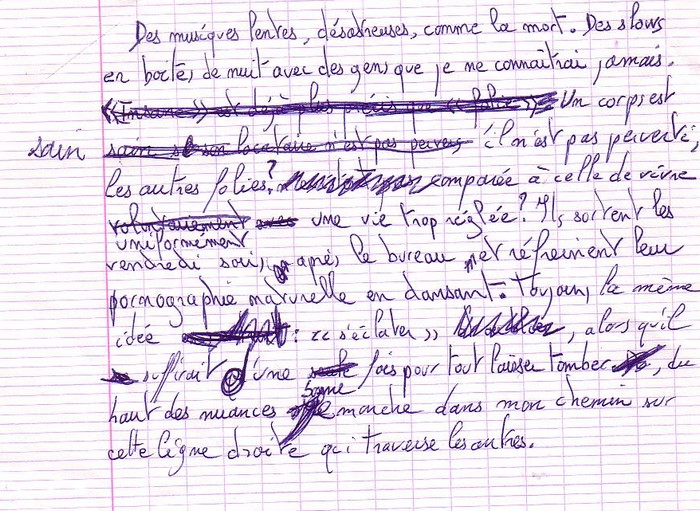 Des musiques lentes, désastreuses, comme la mort. Des slows
en boîtes de nuit avec des gens que je ne connaîtrai jamais.
« Insane » est déjà plus précis que « folie » Un corps est
sain
sain si son locataire n'est pas pervers, il n'est pas perverti,
les autres folies? comparée à celle de vivre
volontairement avec une vie trop réglée? Ils sortent les
uniformément
vendredi soir, après le bureau et réfreinent leur
pornographie naturelle en dansant. Toujours la même
idée : « s'éclater » , alors qu'il
suffirait d'une seule fois pour tout laisser tomber , du
haut des nuances je marche dans mon chemin sur
cette ligne droite qui traverse les autres.